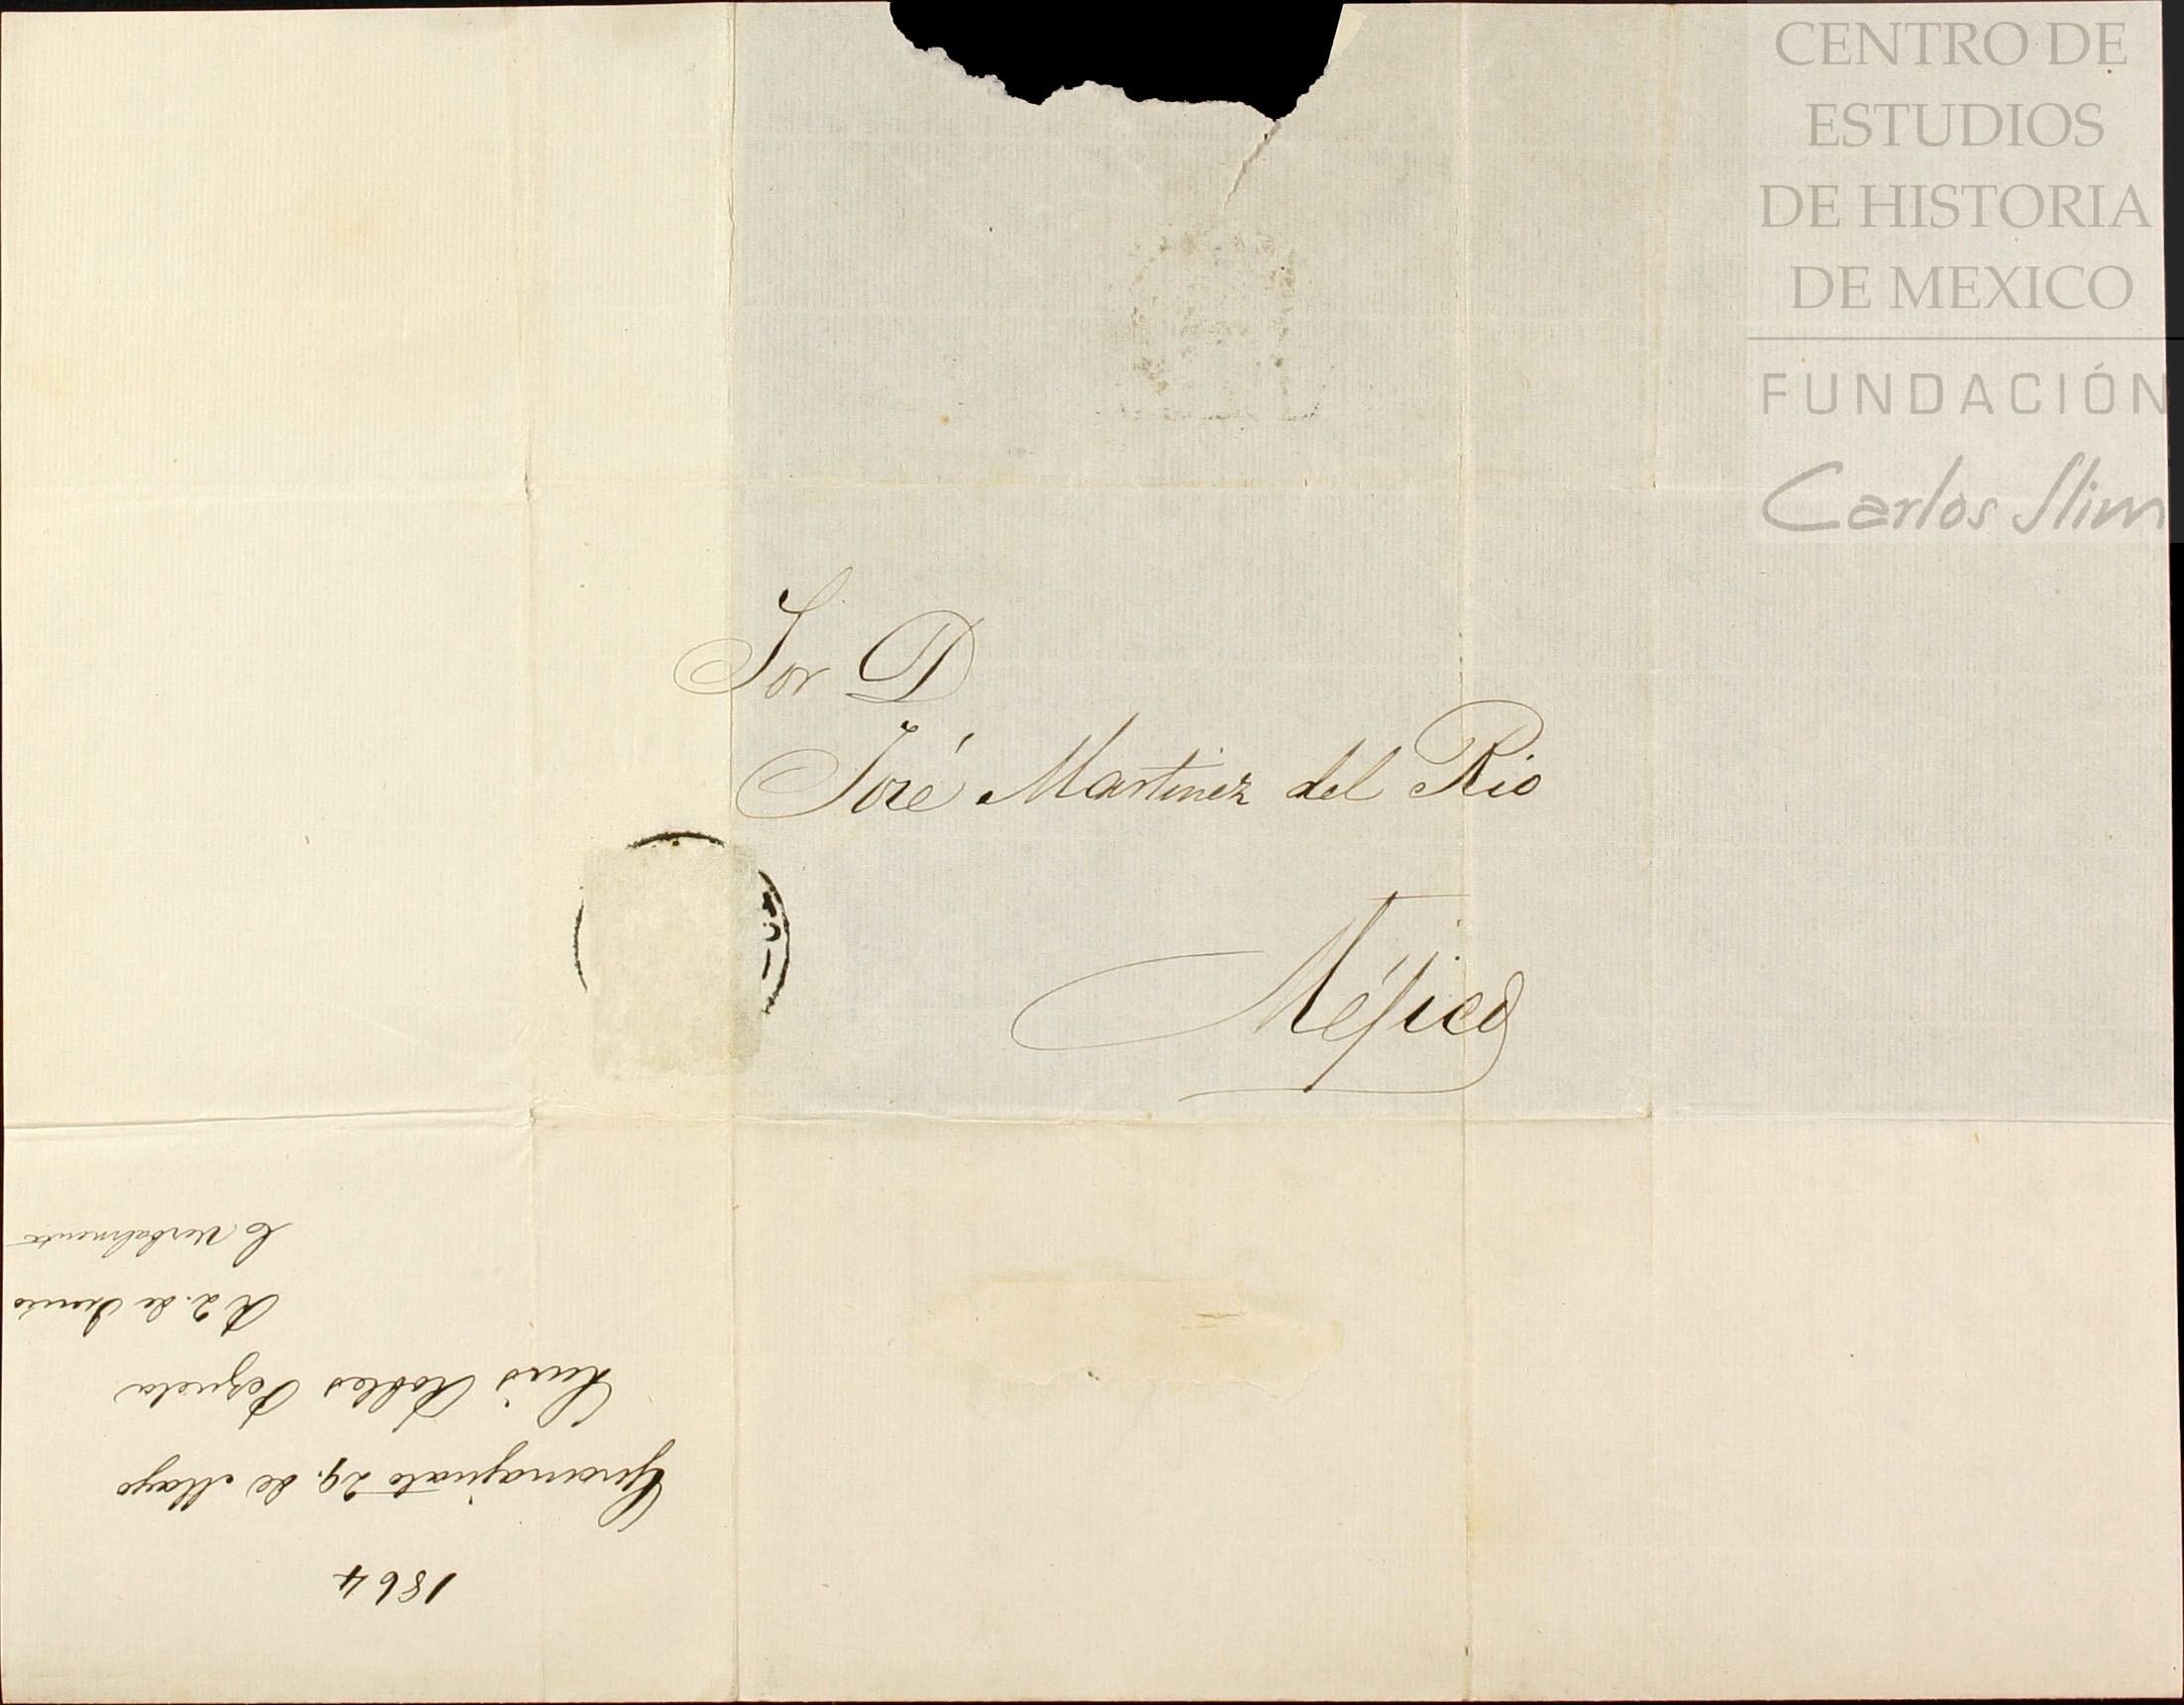 CENTRO DE
ESTUDIOS
DE HISTORIA
DE MEXICO
FUNDACIÓN
Carlos Slim
Sor D
José Martinez del Rio
Méjico
1864
Guanajuato 29. de Mayo
Luis Robles Pezuela
R 2. de Junio
C verbalmente